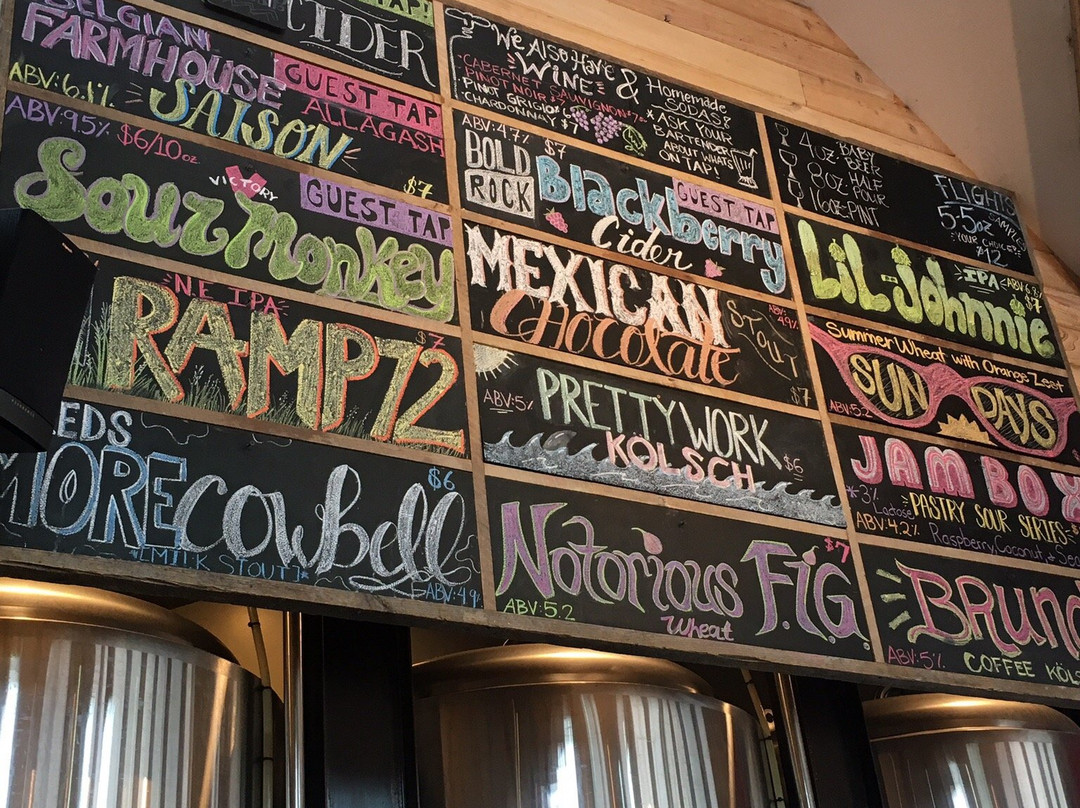 TAP!
CIDER
BELGIAN
FARMHOUSE
SAISON
ABV: 6.1%
GUEST TAP
ALLAGASH
$7
ABV: 9.5%
$6/10oz
VICTORY
Sour Monkey
GUEST TAP
N.E. IPA
RAMP 72
$7
EDS
MORE cowbell
$6
*[MILK STOUT]*
ABV: 4.9%
We Also Have
WINE &
CABERNET SAUVIGNON
PINOT NOIR
PINOT GRIGIO
CHARDONNAY $7
Homemade
SODAS!
*ASK YOUR
BARTENDER
ABOUT WHATS
ON TAP!
ABV: 4.7% $7
BOLD
ROCK
Blackberry
Cider
GUEST TAP
MEXICAN
Chocolate
STOUT
ABV:
4.9%
$7
ABV: 5%
PRETTY WORK
KÖLSCH
$6
Notorious F.I.G
$7
ABV: 5.2
Wheat
4oz BABY BEER
8oz HALF POUR
16oz-PINT
FLIGHTS
5-5oz
SAMPLES
YOUR CHOICE
$12
LiL-Johnnie
IPA
$7
Summer Wheat with Orange Zest
SUN DAYS
ABV: 5.2
JAM BOX
*3%
Lactose
PASTRY SOUR SERIES
ABV: 4.2%
Raspberry, Coconut &
BRUN
ABV: 5%
COFFEE KÖLS